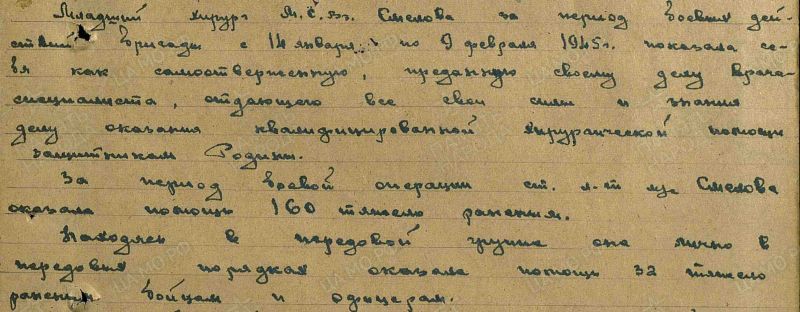 Младший хирург М.С.Вз. Смелова за период боевых дей-
ствий бригады с 14 января по 9 февраля 1945г. показала се-
бя как самоотверженную, преданную своему делу врача-
специалиста, отдающего все свои силы и знания
делу оказания квалифицированной хирургической помощи
защитникам Родины.
За период боевой операции ст. л-т м/с Смелова
оказала помощь 160 тяжело раненым.
Находясь в передовой группе она лично в
передовых порядках оказала помощь 32 тяжело
раненым бойцам и офицерам.